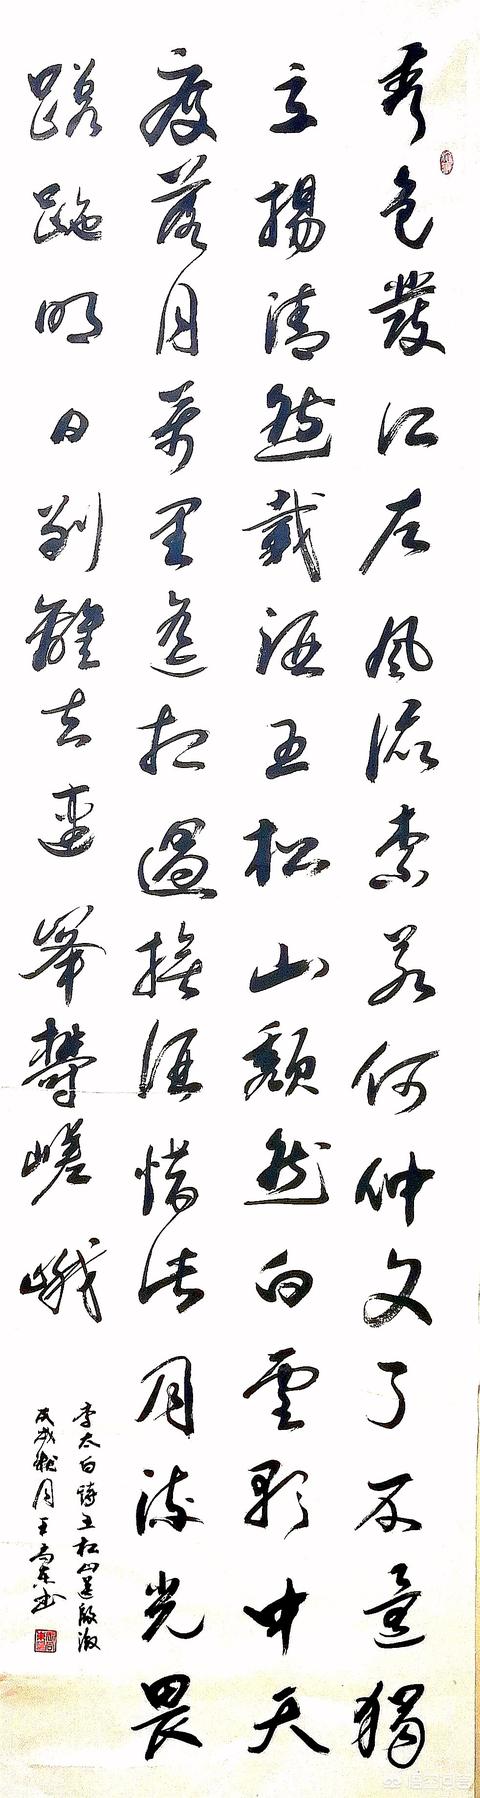 秀色發江左風流柰若何仲文了不還獨
立揚清然載酒五松山頹然白雲歌中天
度落月萬里遙相過撫酒惜此月流光畏
蹉跎明日別離去連峯鬱嵯峨
李太白詩五松山送殷淑
戊戌月王東书
悟空问答